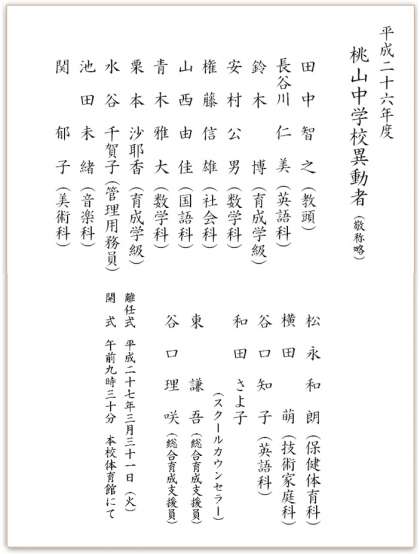 平成二十六年度
桃山中学校異動者(敬称略)
田中智之(教頭)
長谷川仁美(英語科)
鈴木博(育成学級)
安村公男(数学科)
権藤信雄(社会科)
山西由佳(国語科)
青木雅大(数学科)
栗本沙耶香(育成学級)
水谷千賀子(管理用務員)
池田未緒(音楽科)
関郁子(美術科)
松永和朗(保健体育科)
横田萌(技術家庭科)
谷口知子(英語科)
和田さよ子
(スクールカウンセラー)
東謙吾(総合育成支援員)
谷口理咲(総合育成支援員)
離任式 平成二十七年三月三十一日(火)
開式 午前九時三十分 本校体育館にて